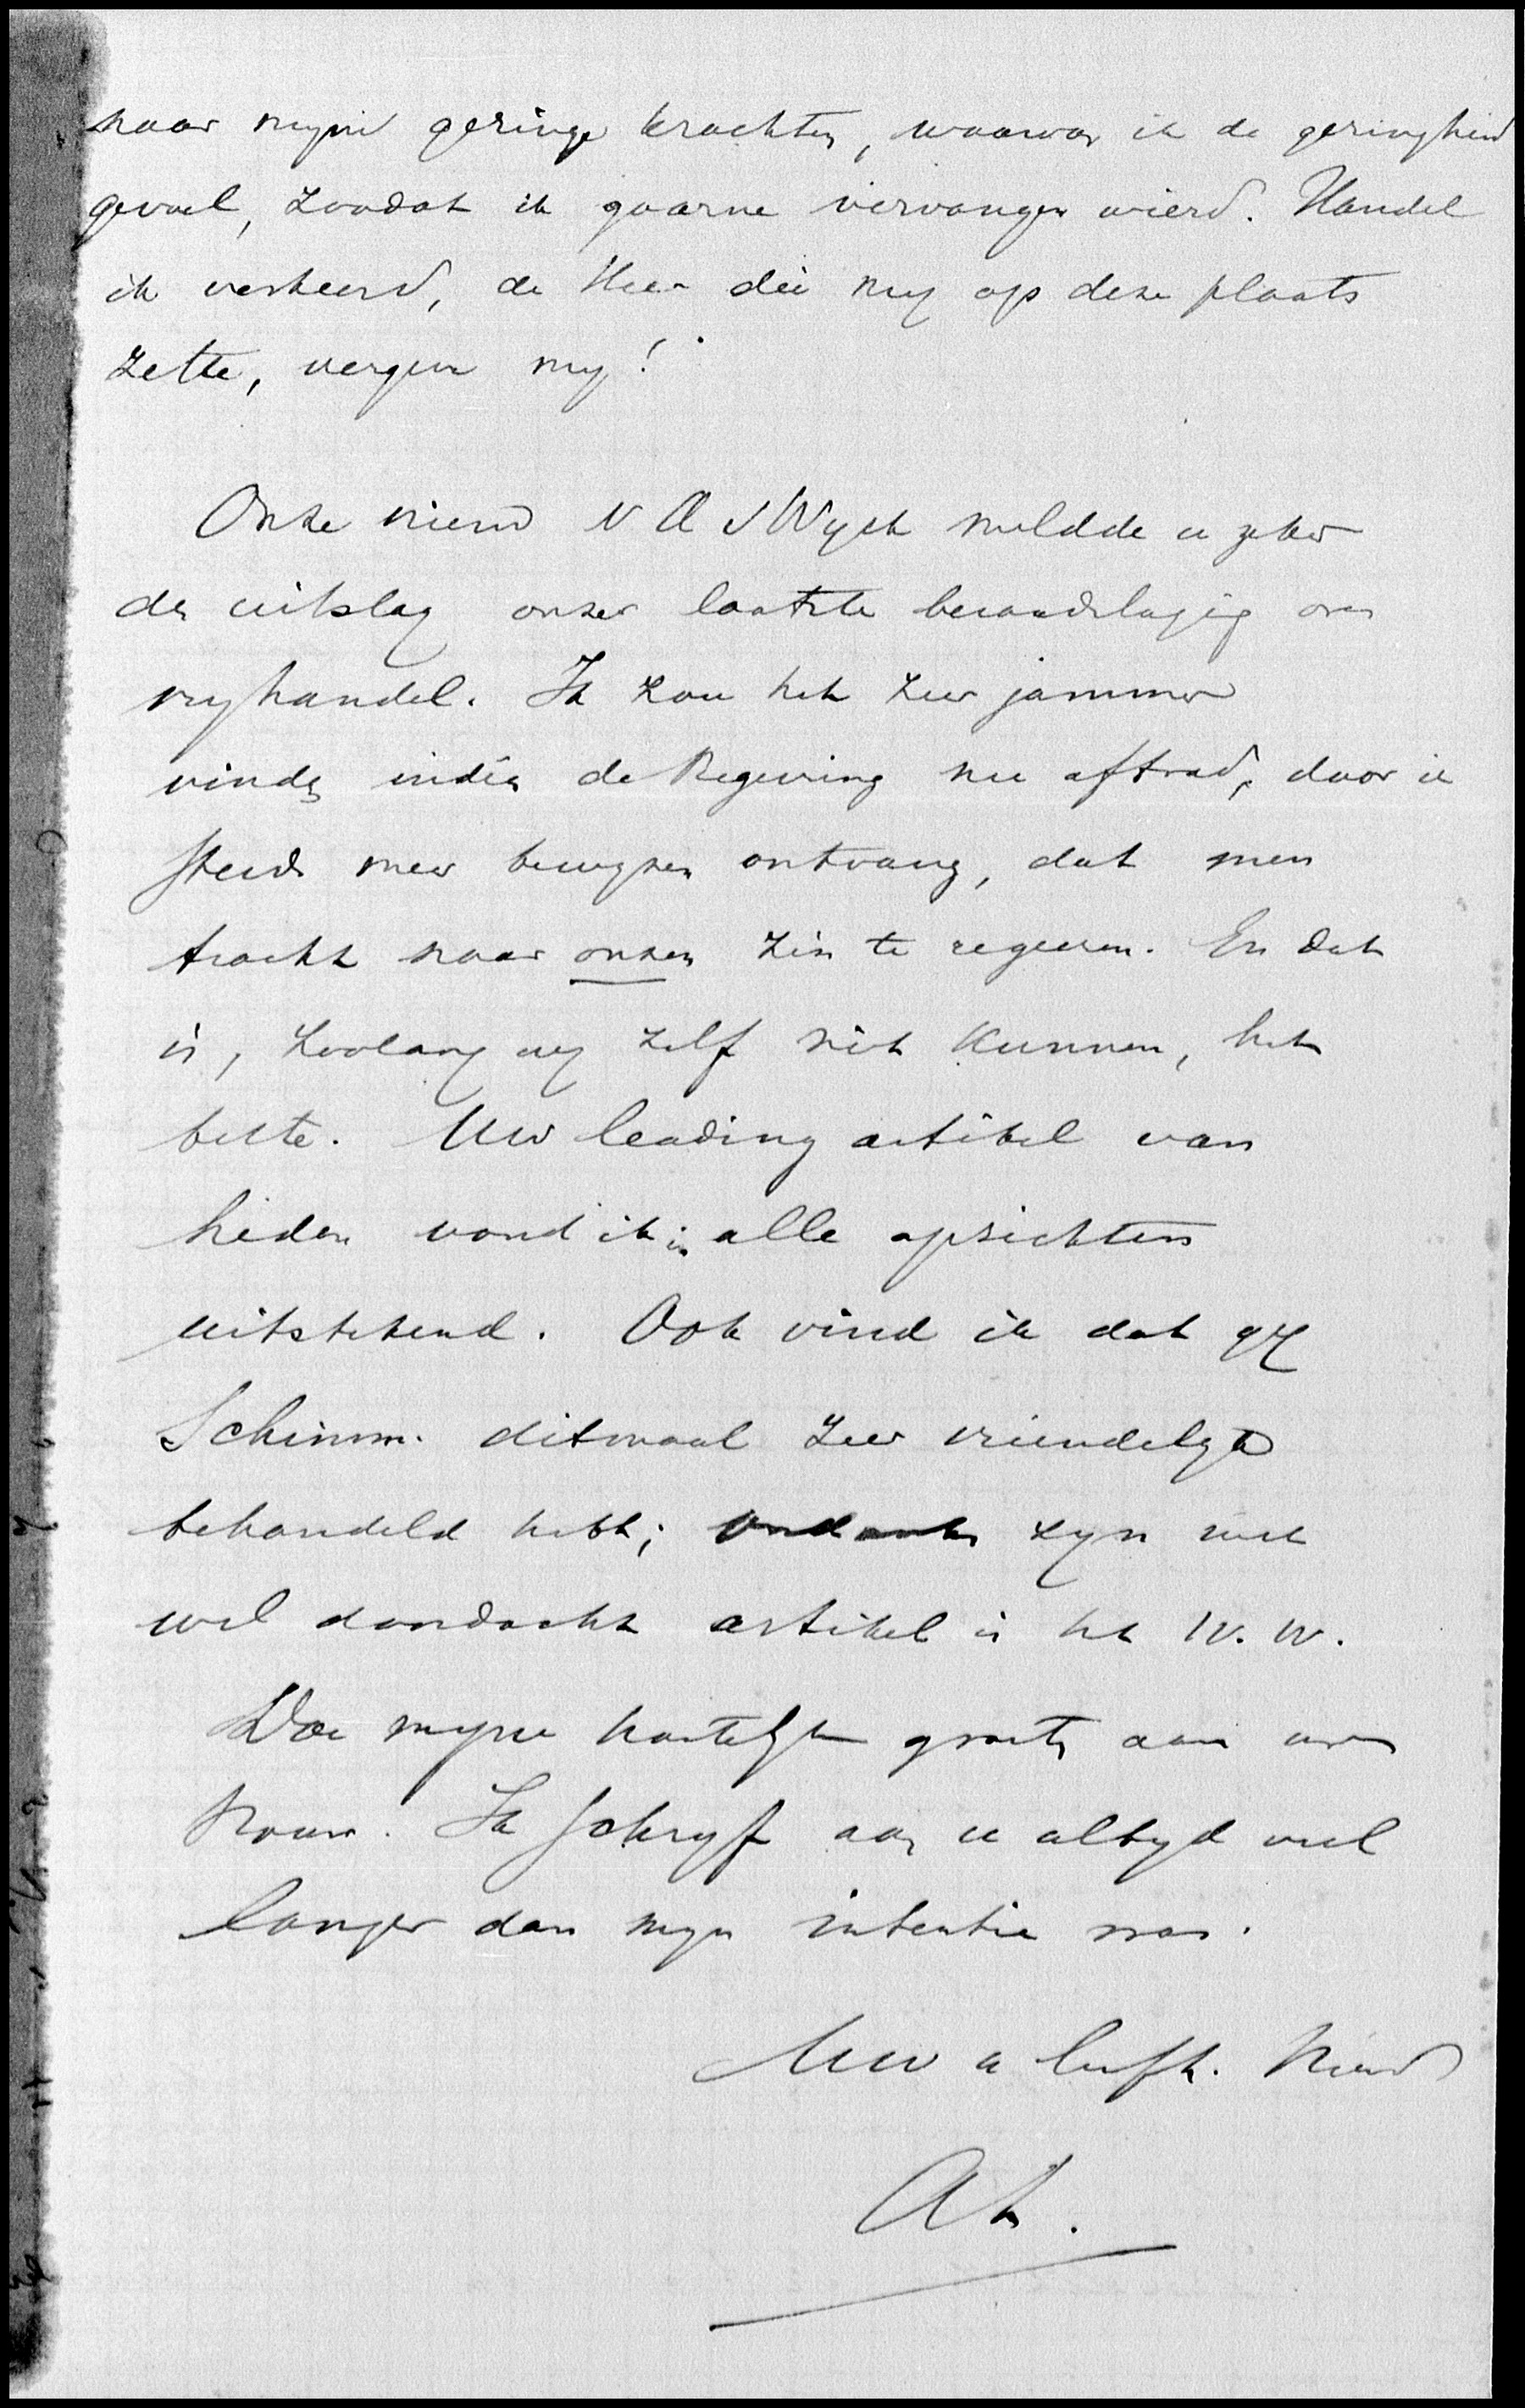 naar mijne geringe krachten, waarvan ik de geringheid
gevoel, zoodat ik gaarne vervangen wierd. Handel
ik verkeerd, de Heer die mij op deze plaats
zette, vergeve mij!
Onze vriend V A v Wyck meldde u zeker
den uitslag onzer laatste beraadslaging over
vryhandel. Ik zou het zeer jammer
vinden indien de Regeering nu aftrad, daar ik
steeds meer bewyzen ontvang, dat men
tracht naar onzen zin te regeeren. En dat
is, zoolang wy zelf niet kunnen, het
beste. Uw leading artikel van
heden vond ik in alle opzichten
uitstekend. Ook vind ik dat gy
Schimm. ditmaal zeer vriendelyk
behandeld hebt; zyn niet
wel doordacht artikel in het W. W.
Doe myne hartelyke groeten aan uwe
vrouw. Ik schryf aan u altyd veel
langer dan myn intentie was.
Uw u liefh. vriend
AK.